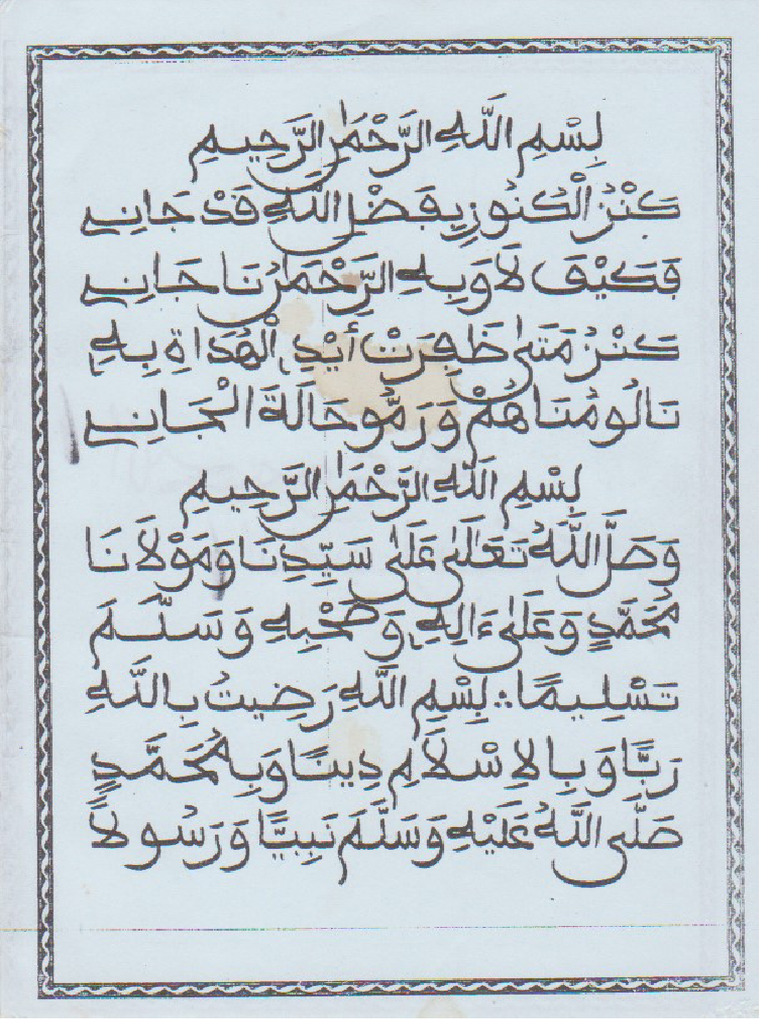 بِسْمِ اللَّهِ الرَّحْمَٰنِ الرَّحِيمِ
كَنْزُ الْكُنُوزِ بِفَضْلِ اللَّهِ قَدْ جَانِي
فَكَيْفَ لَا وَبِهِ الرَّحْمَٰنُ نَاجَانِي
كَنْزٌ مَتَىٰ ظَفِرَتْ أَيْدِ الْهُدَاةِ بِهِ
نَالُو مُنَاهُمْ وَرَمُّو حَالَةَ الْجَانِي
بِسْمِ اللَّهِ الرَّحْمَٰنِ الرَّحِيمِ
وَصَلَّ اللَّهُ تَعَالَىٰ عَلَىٰ سَيِّدِنَا وَمَوْلَانَا
مُحَمَّدٍ وَعَلَىٰ ءَالِهِ وَصَحْبِهِ وَسَلَّمَ
تَسْلِيمًا ؞ بِسْمِ اللَّهِ رَضِيتُ بِاللَّهِ
رَبًّا وَبِالاِسْلَامِ دِينًا وَبِمُحَمَّدٍ
صَلَّى اللَّهُ عَلَيْهِ وَسَلَّمَ نَبِيًّا وَرَسُولًا